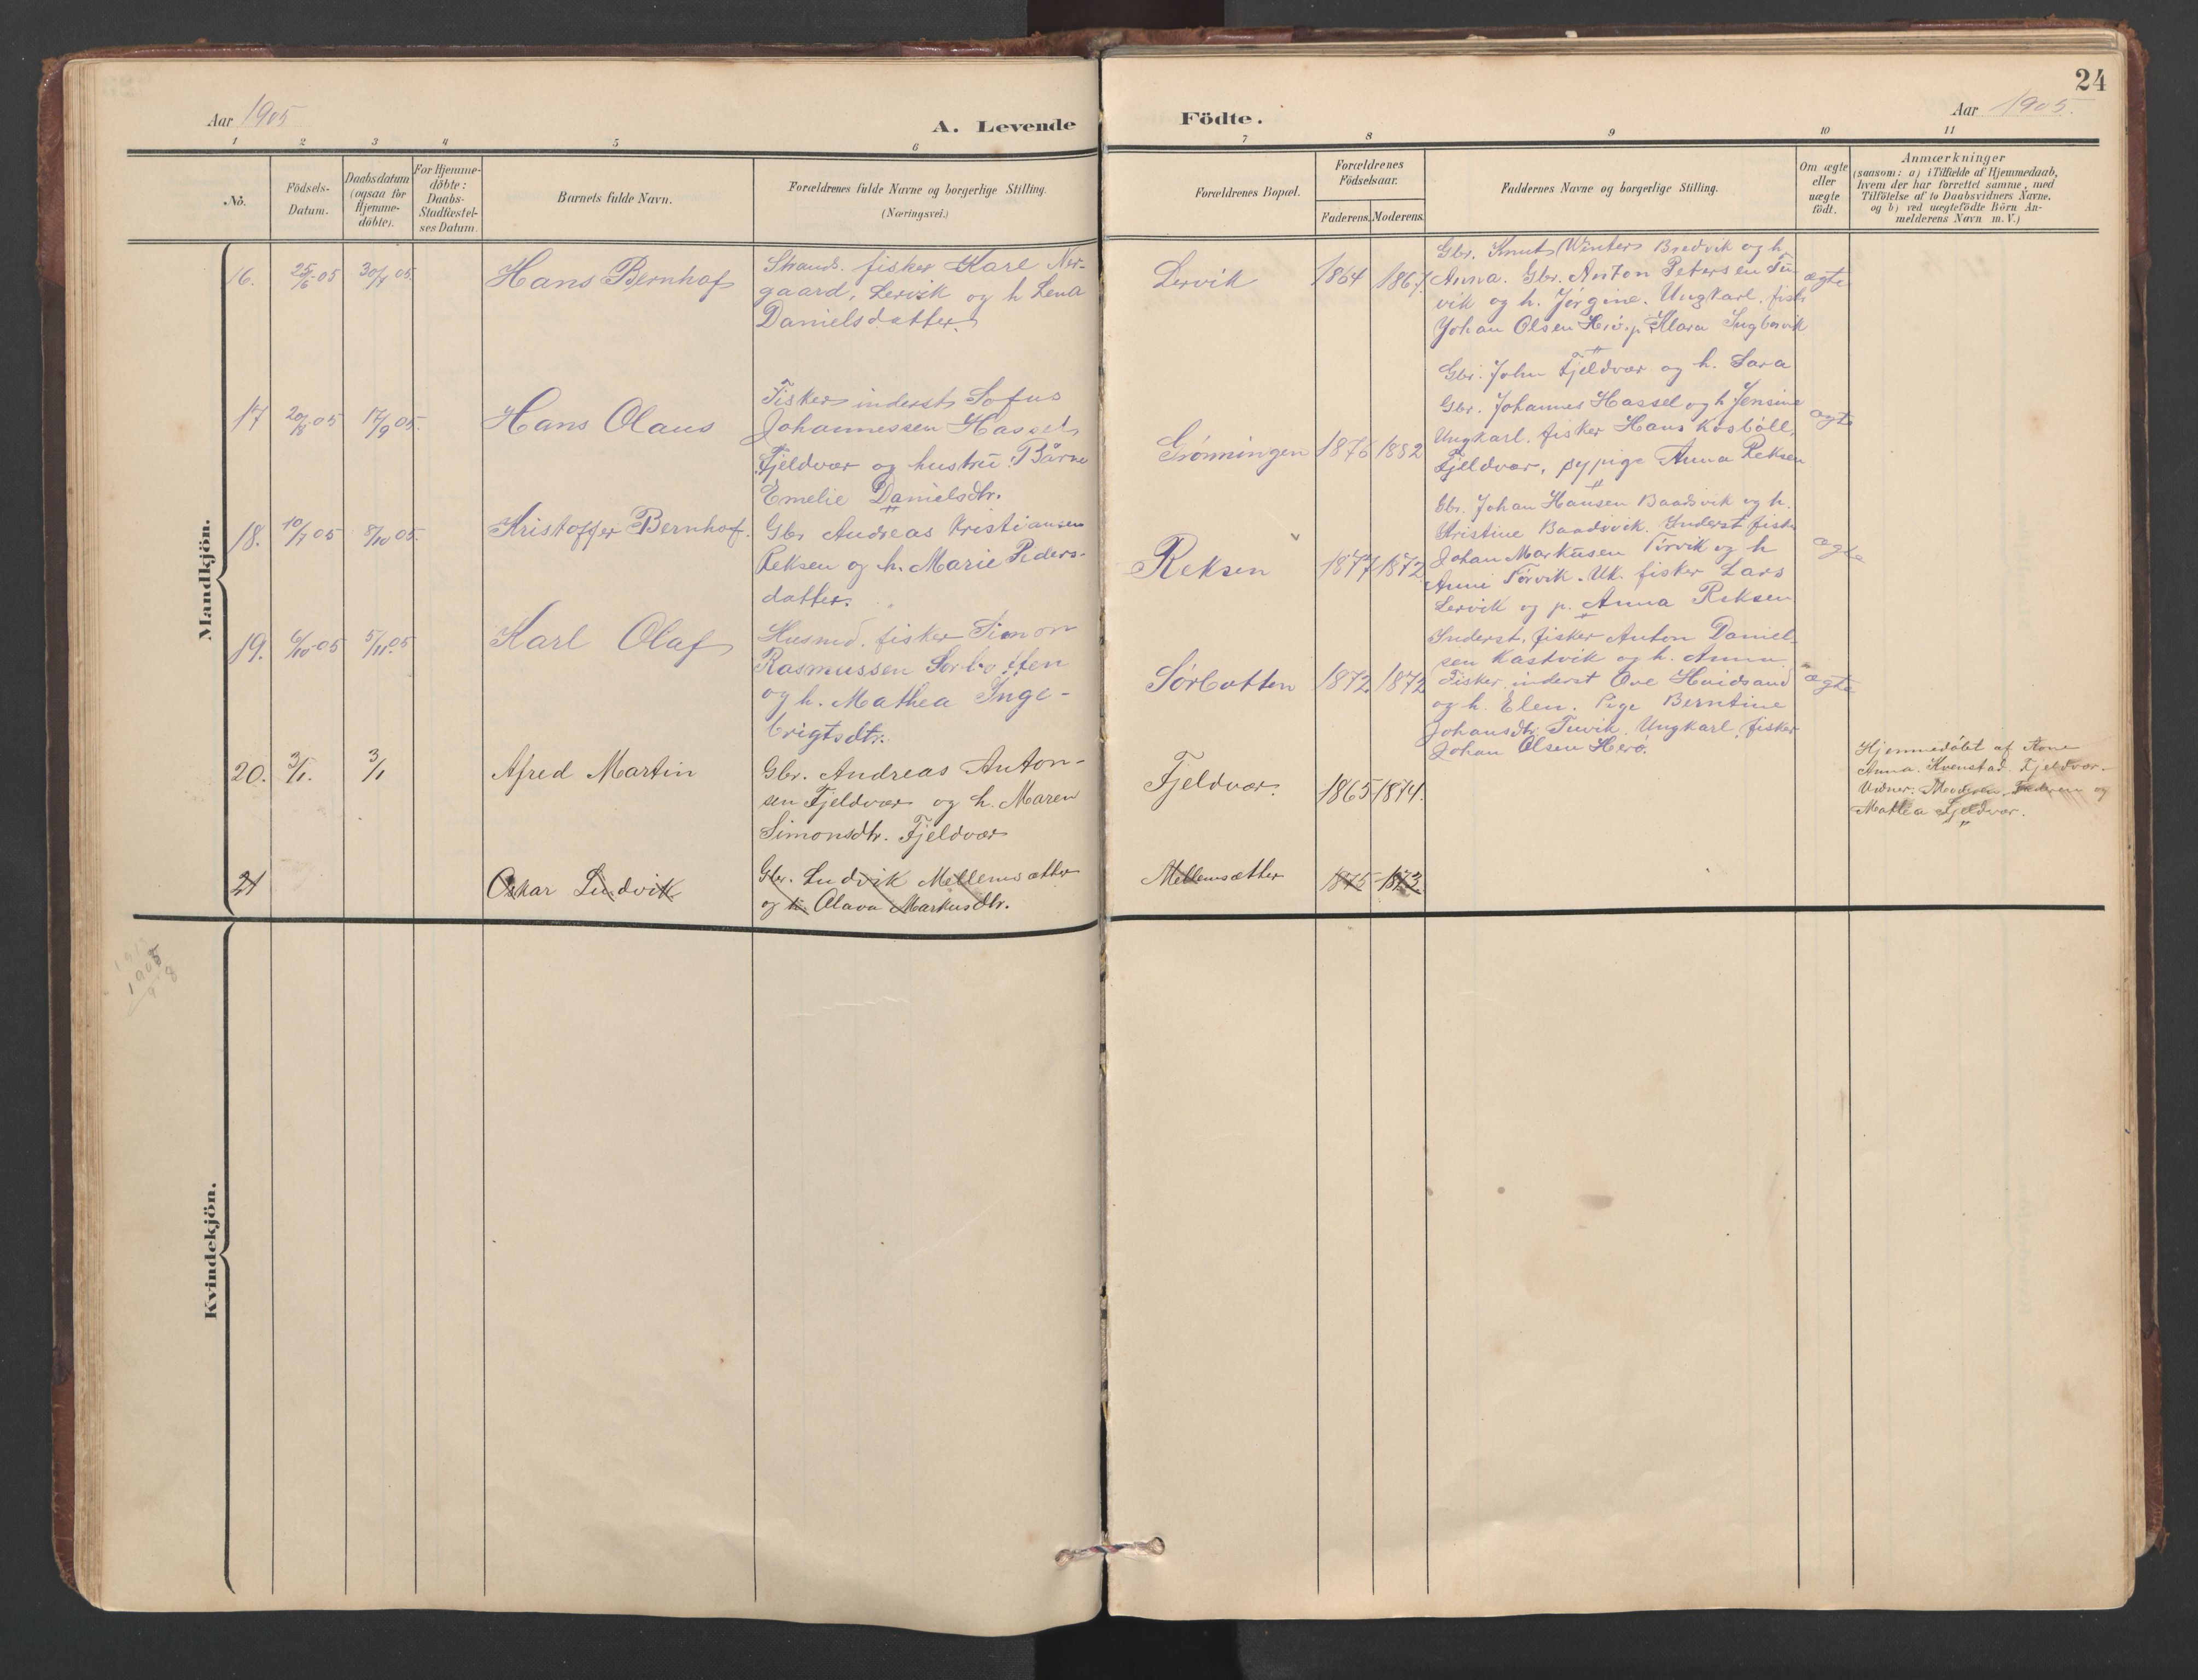 24
Aar 1905
A. Levende
Födte.
Aar 1905.
1 2 3 4 5 6 7 8 9 10 11
No.
Födsels-
Datum.
Daabsdatum
(ogsaa for
Hjemme-
döbte).
For Hjemme-
döbte:
Daabs-
Stadfæstel-
ses Datum.
Barnets fulde Navn.
Forældrenes fulde Navne og borgerlige Stilling.
(Næringsvei.)
Forældrenes Bopæl.
Forældrenes
Födselsaar.
Faderens. Moderens.
Faddernes Navne og borgerlige Stilling.
Om ægte
eller
uægte
födt.
Anmærkninger
(saasom: a) i Tilfælde af Hjemmedaab,
hvem der har forrettet samme, med
Tilföielse af to Daabsvidners Navne,
og b) ved uægtefödte Börn An-
melderens Navn m. V.)
Mandkjön.
16. 25/6 05 30/7 05. Hans Bernhof
Strands. fisker Karl Ner-
gaard, Lervik og h Lena
Danielsdatter.
Lervik 1864 1867
Gbr. Knut Winter Bredvik og h.
Anna. Gbr. Anton Petersen Tu-
vik og h. Jørgine. Ungkarl. fisk
Johan Olsen Herø. p. Klara Ingborvik
ægte
17 20/8 05 17/9 05. Hans Olaus
Fisker inderst Sofus
Johannessen Hassel
Fjeldvær og hustru Bårne
Emelie Danielsdtr.
Grønningen 1876 1882
Gbr. John Fjeldvær og h. Sara
Gbr. Johannes Hassel og h Jensine
Ungkarl. fisker Hans Kosböll,
Fjeldvær, sypige Anna Reksen
ægte
18. 10/7 05 8/10 05. Kristoffer Bernhof.
Gbr Andreas Kristiansen
Reksen og h. Marie Peders-
datter.
Reksen 1877 1872
Gbr. Johan Hansen Baadsvik og h.
Kristine Baadsvik. Inderst fisker
Johan Markusen Tørvik og h
Anne Tørvik. Uk. fisker Lars
Lervik og p. Anna Reksen
ægte
19. 6/10 05 5/11 05 Karl Olaf
Husmd. fisker Simon
Rasmussen Sørbotten
og h. Mathea Inge-
brigtsdtr.
Sørbotten 1872 1872
Inderst, fisker Anton Daniel-
sen Kastvik og h. Anna
Fisker, inderst Ove Hvidsand
og h. Elen. Pige Berntine
Johansdtr. Tuvik. Ungkarl, fisker
Johan Olsen Herø.
ægte
20. 3/1. 3/1 Afred Martin
Gbr. Andreas Anton-
sen Fjeldvær og h. Maren
Simonsdtr. Fjeldvær
Fjeldvær. 1865 1874.
Hjemmedöbt af Kone
Anna Kvenstad. Fjeldvær.
Vidner. Moderen, Faderen og
Mathea Fjeldvær.
21 Oskar Ludvik
Gbr. Ludvik Mellemsætter
og h. Olava Markusdtr.
Mellemsætter 1875 1873
Kvindekjön.
1905